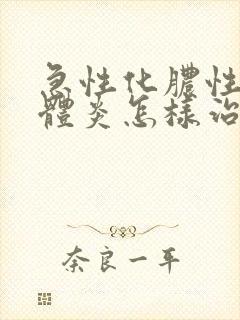 急性化膿性
體炎怎樣治
奈良一平